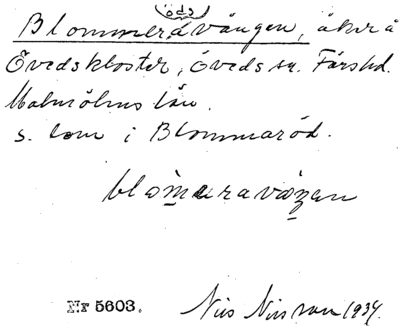 öds
Blommerdvången, åker å
Övedskloster, Öveds sn. Färs hd.
Malmöhus län.
s. lom i Blommaröd.
blomaravåŋan
Nr 5603. Nils Nilsson 1934.